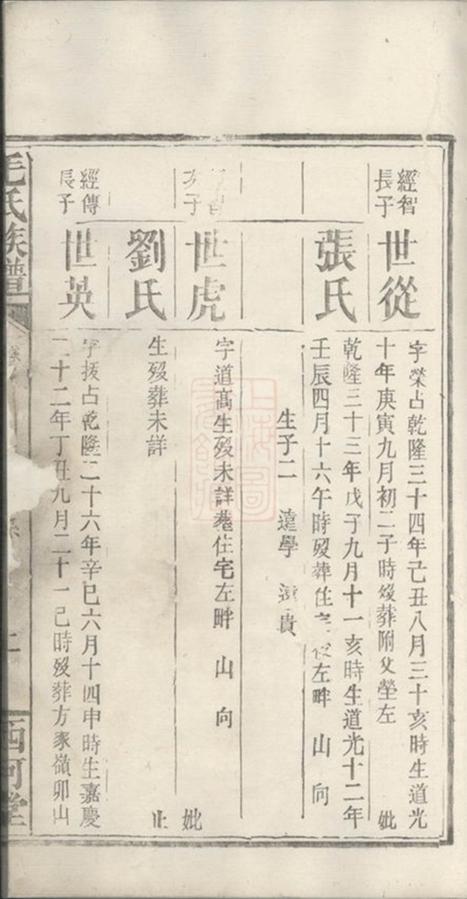 經智
長子
世從
字榮占乾隆三十四年己丑八月三十亥時生道光
十年庚寅九月初二子時歿葬附父塋左
妣
張氏
乾隆三十三年戊子九月十一亥時生道光十二年
壬辰四月十六午時歿葬住左畔 山 向
生子二 遠學 貴
智
次子
世虎
字道高生歿未詳葬住宅左畔 山 向
妣
劉氏
生歿葬未詳
止
經傳
長子
世英
字拔占乾隆二十六年辛巳六月十四申時生嘉慶
二十二年丁丑九月二十一巳時歿葬方家嶺卯山
毛氏族譜
卷
二
西河堂